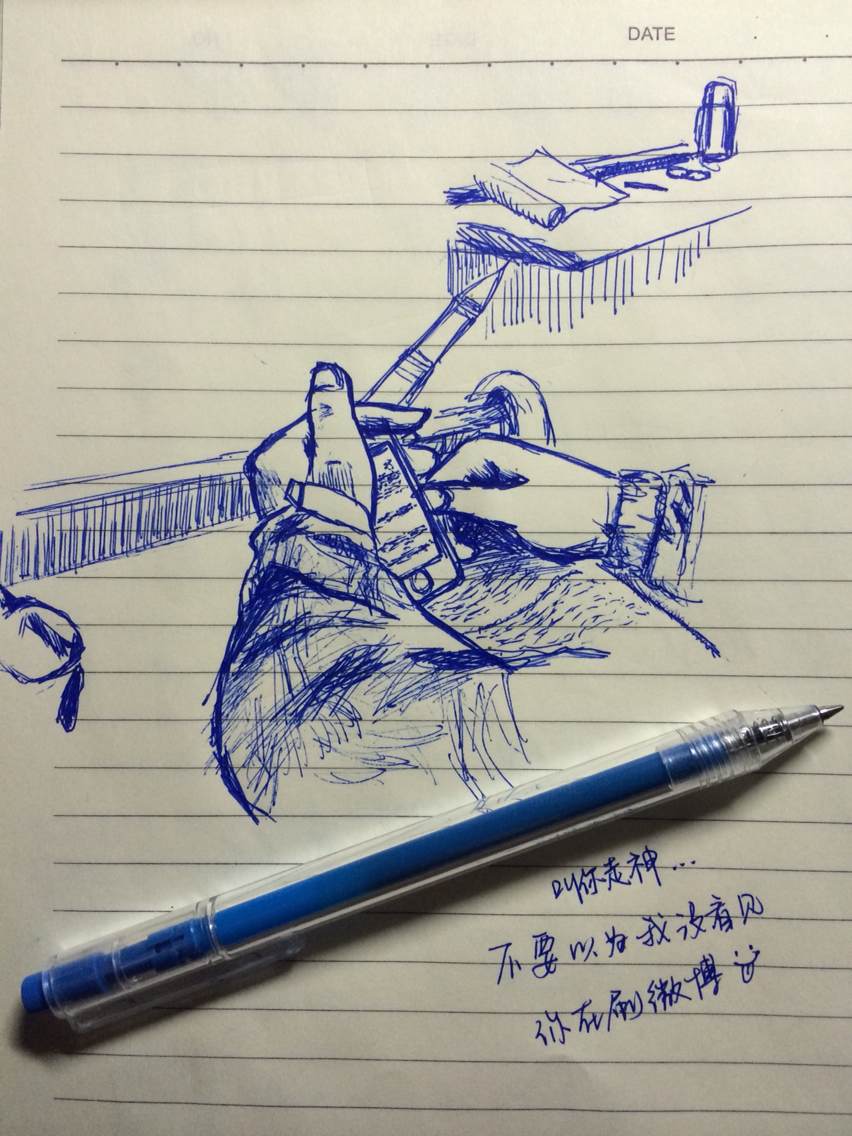 DATE
叫你走神…
不要以为我没看见
你在刷微博